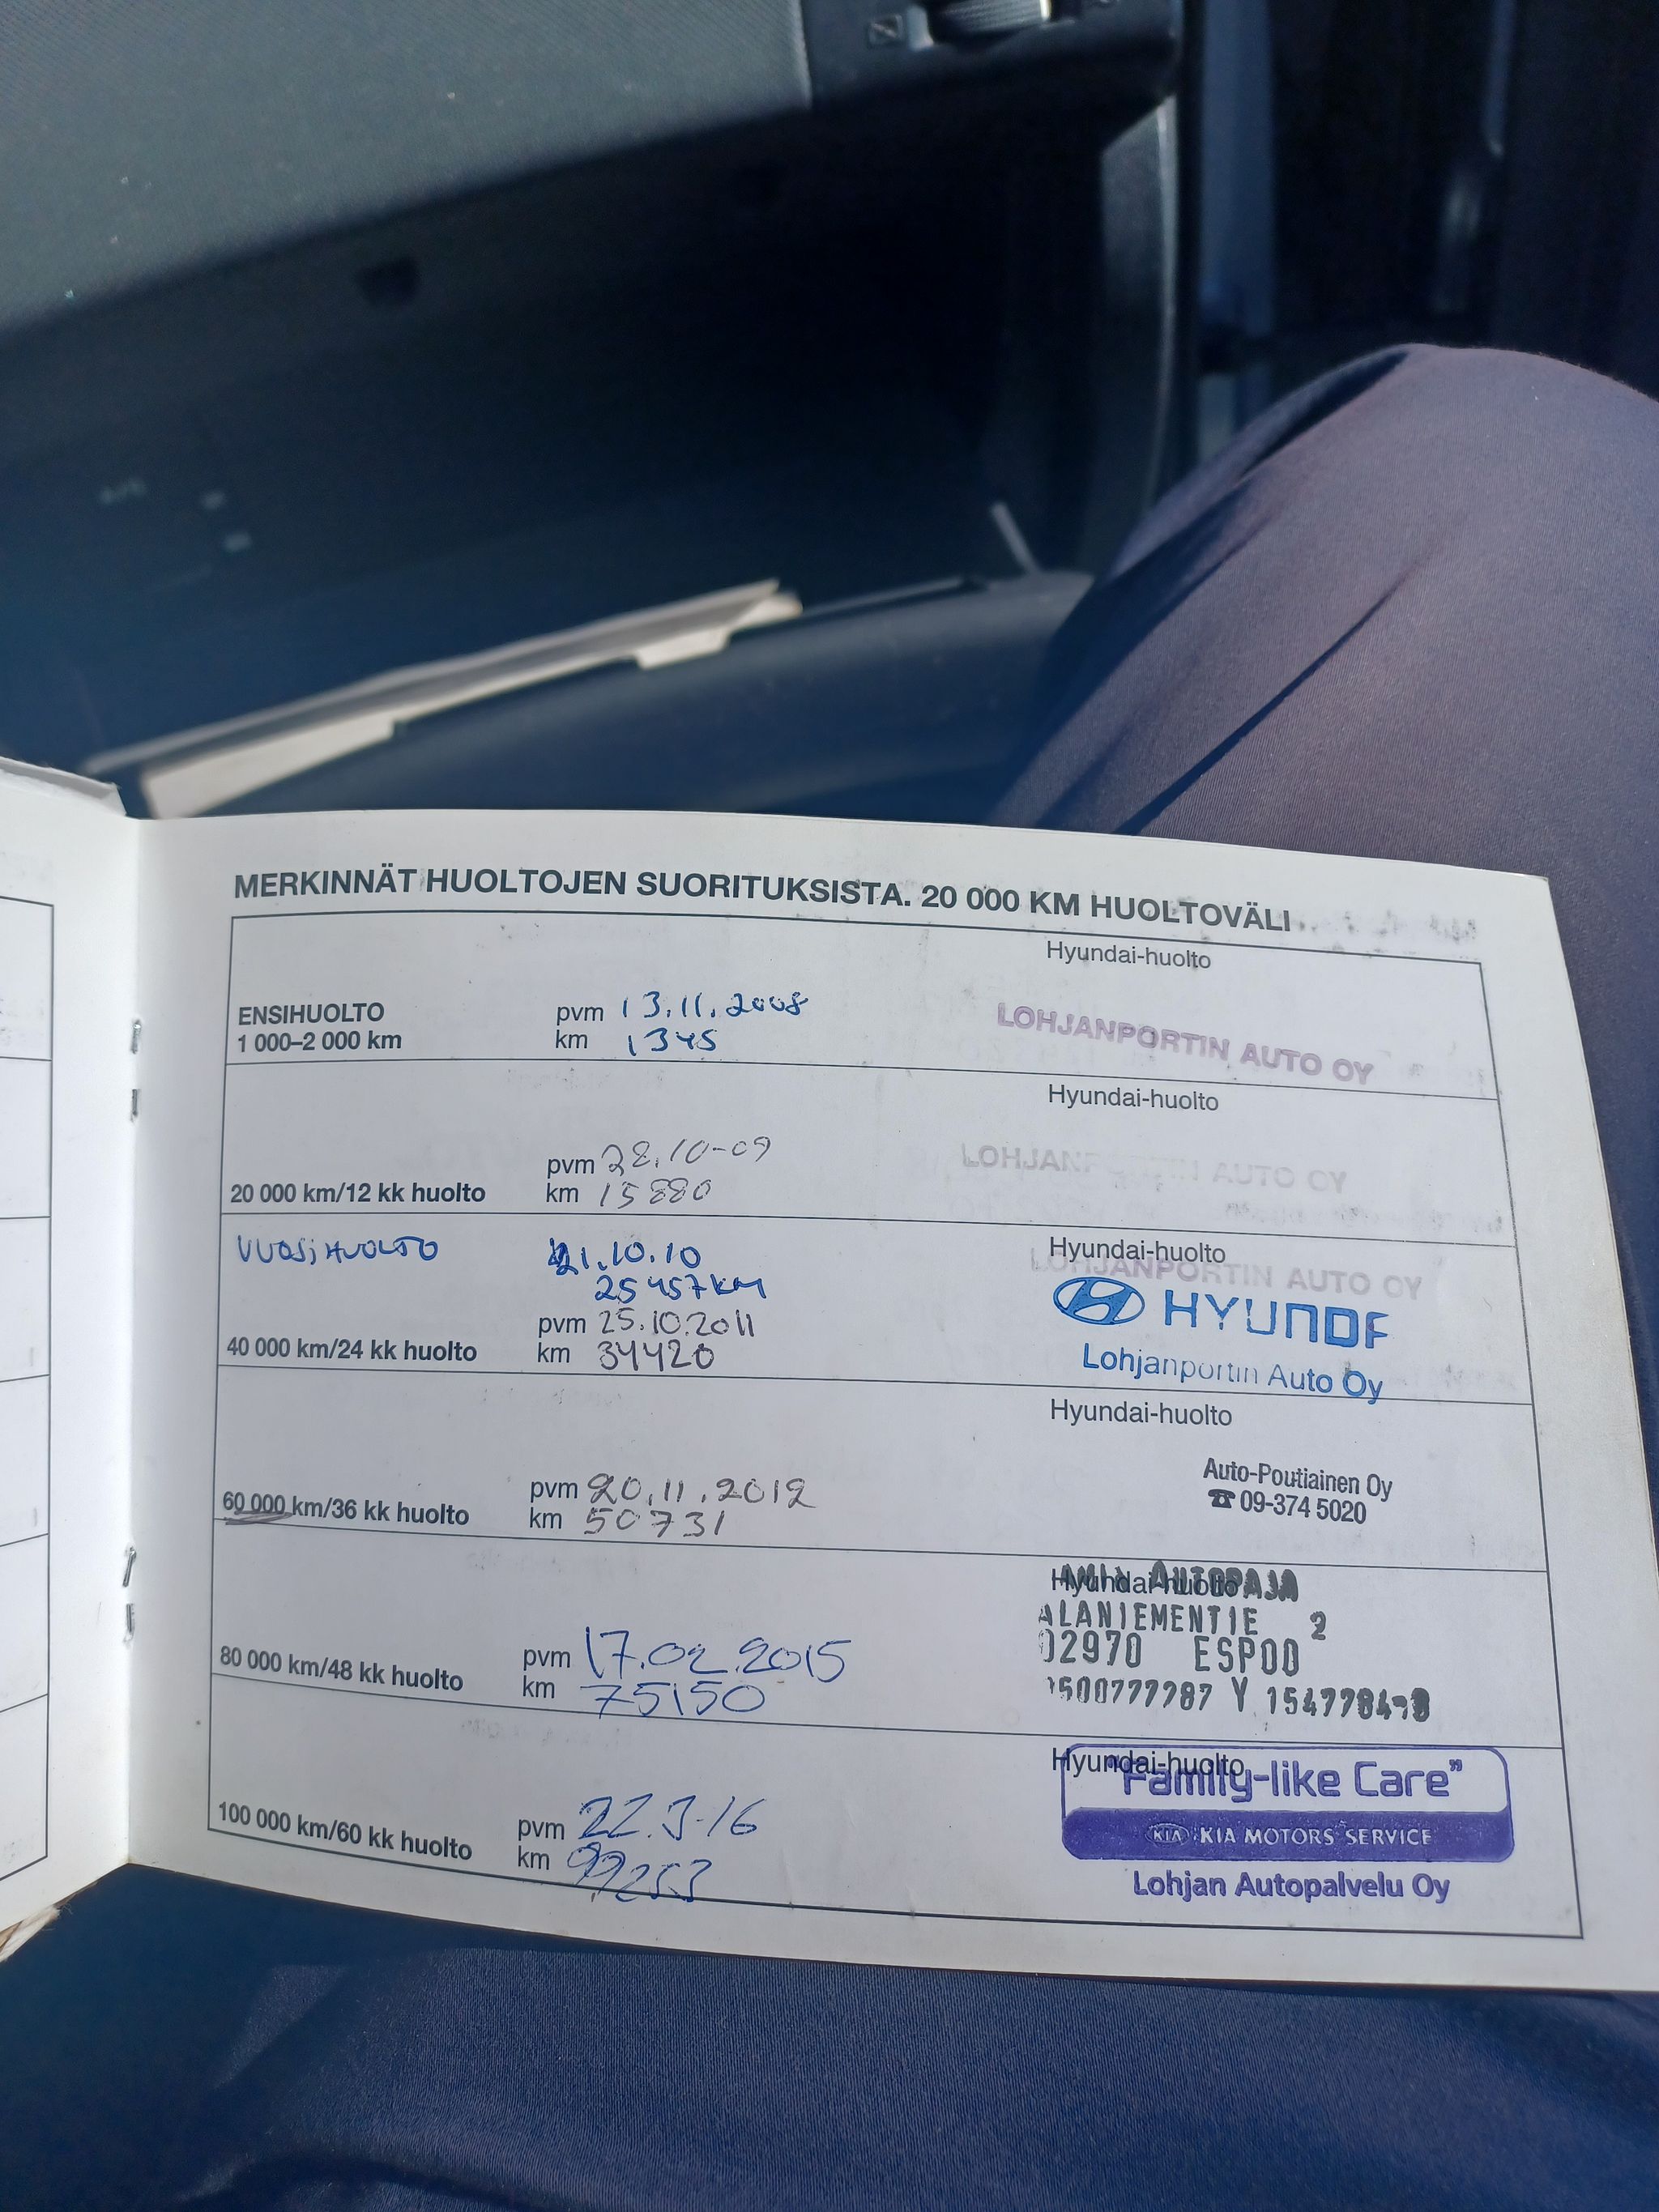 MERKINNÄT HUOLTOJEN SUORITUKSISTA. 20 000 KM HUOLTOVÄLI
Hyundai-huolto
ENSIHUOLTO
1 000–2 000 km
pvm 13.11.2008
km 1345
LOHJANPORTIN AUTO OY
Hyundai-huolto
20 000 km/12 kk huolto
pvm 28.10-09
km 15880
LOHJANPORTIN AUTO OY
VUOSIHUOLTO
21.10.10
25457KM
Hyundai-huolto
LOHJANPORTIN AUTO OY
40 000 km/24 kk huolto
pvm 25.10.2011
km 34420
HYUNDF
Lohjanportin Auto Oy
Hyundai-huolto
60 000 km/36 kk huolto
pvm 20.11.2012
km 50731
Auto-Poutiainen Oy
☎ 09-374 5020
Hyundai-huolto
AUTOPAJA
ALANIEMENTIE 2
02970 ESPOO
80 000 km/48 kk huolto
pvm 17.02.2015
km 75150
Y 1547784-8
Hyundai-huolto
"Family-like Care"
KIA KIA MOTORS SERVICE
Lohjan Autopalvelu Oy
100 000 km/60 kk huolto
pvm 22.3-16
km 99253